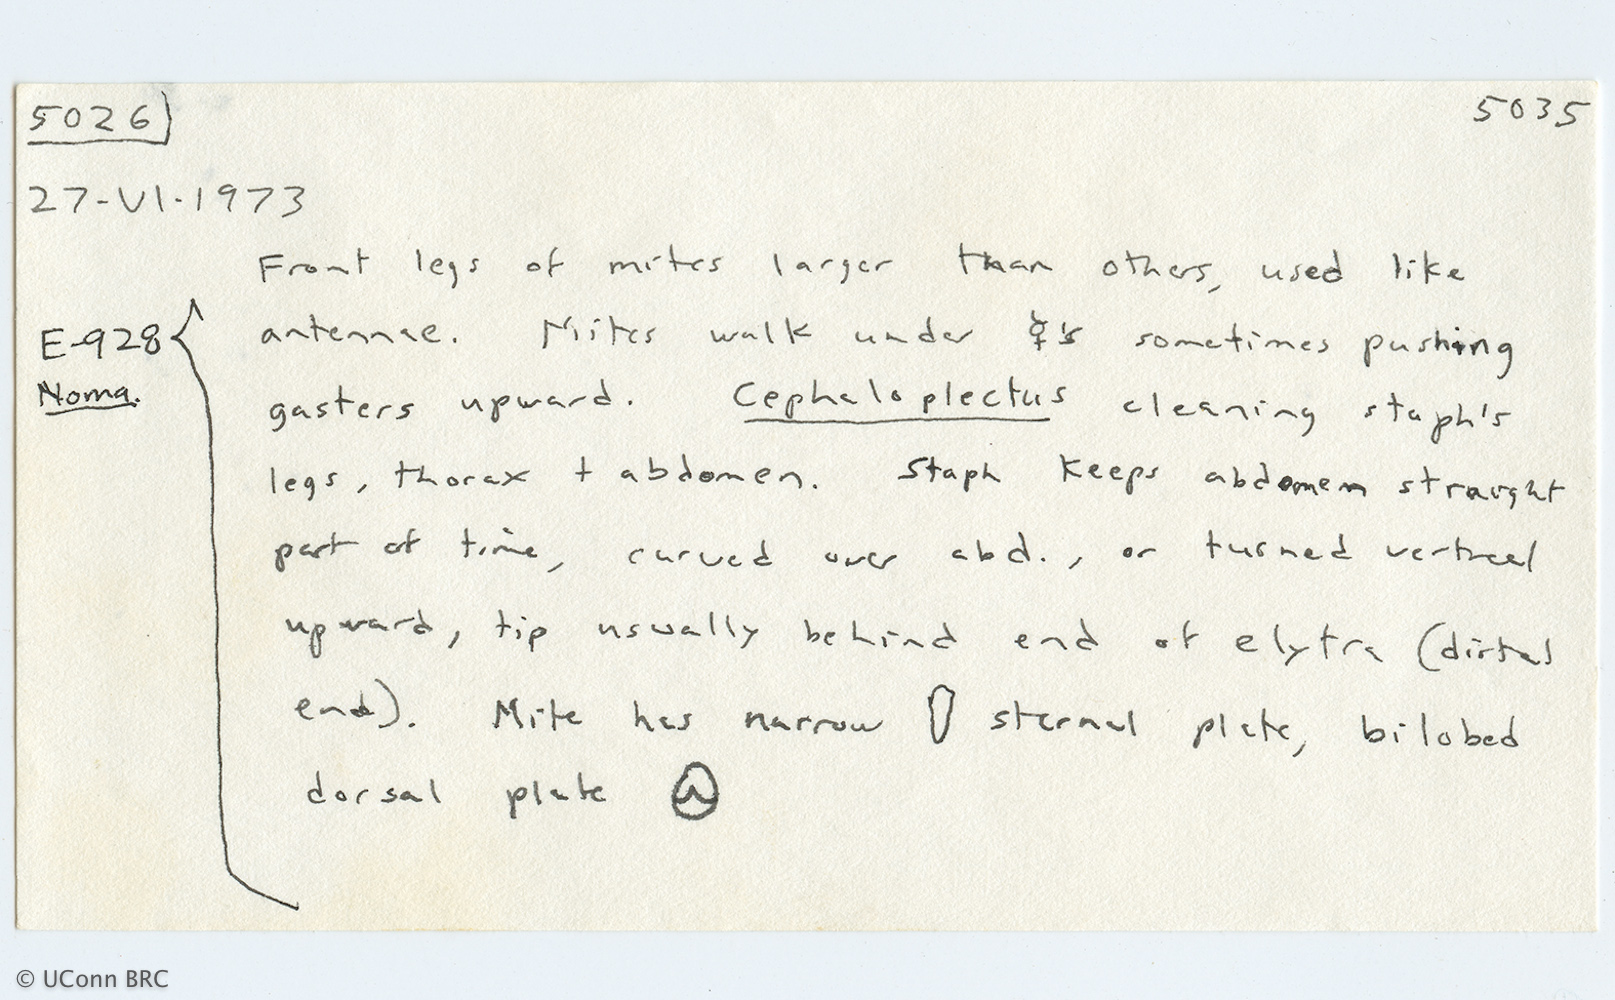 5026
5035
27-VI-1973
Front legs of mites larger than others, used like
E-928
antennae. Mites walk under ☿'s sometimes pushing
Noma.
gasters upward. Cephaloplectus cleaning staph's
legs, thorax + abdomen. Staph keeps abdomen straight
part of time, curved over abd., or turned vertical
upward, tip usually behind end of elytra (distal
end). Mite has narrow sternal plate, bilobed
dorsal plate
© UConn BRC